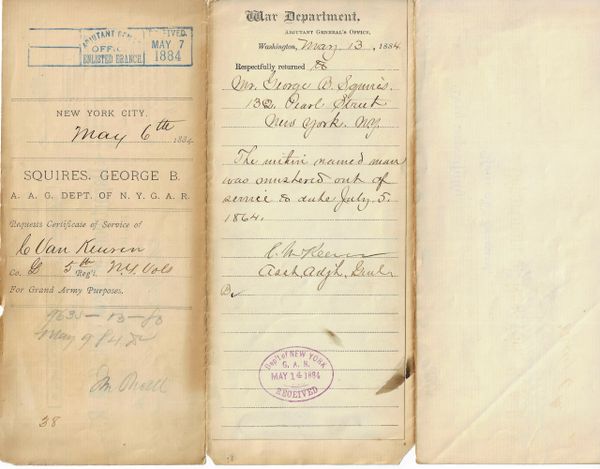 ADJUTANT GEN
RECEIVED
OFFICE
ENLISTED BRANCH
MAY 7
1884
NEW YORK CITY.
May 6th 1884
SQUIRES, GEORGE B.
A. A. G. DEPT. OF N. Y. G. A. R.
Requests Certificate of Service of
C Van Keuren
Co. G 5th Reg't. N.Y. Vols
For Grand Army Purposes.
38
War Department,
ADJUTANT GENERAL'S OFFICE,
Washington, May 13, 1884
Respectfully returned to
Mr. George B. Squires.
132 Pearl Street
New York. N.Y.
The within named man
was mustered out of
service to date July 5.
1864.
Asst. Adjt. Genl.
Dep't of NEW YORK
G. A. R.
MAY 14 1884
RECEIVED